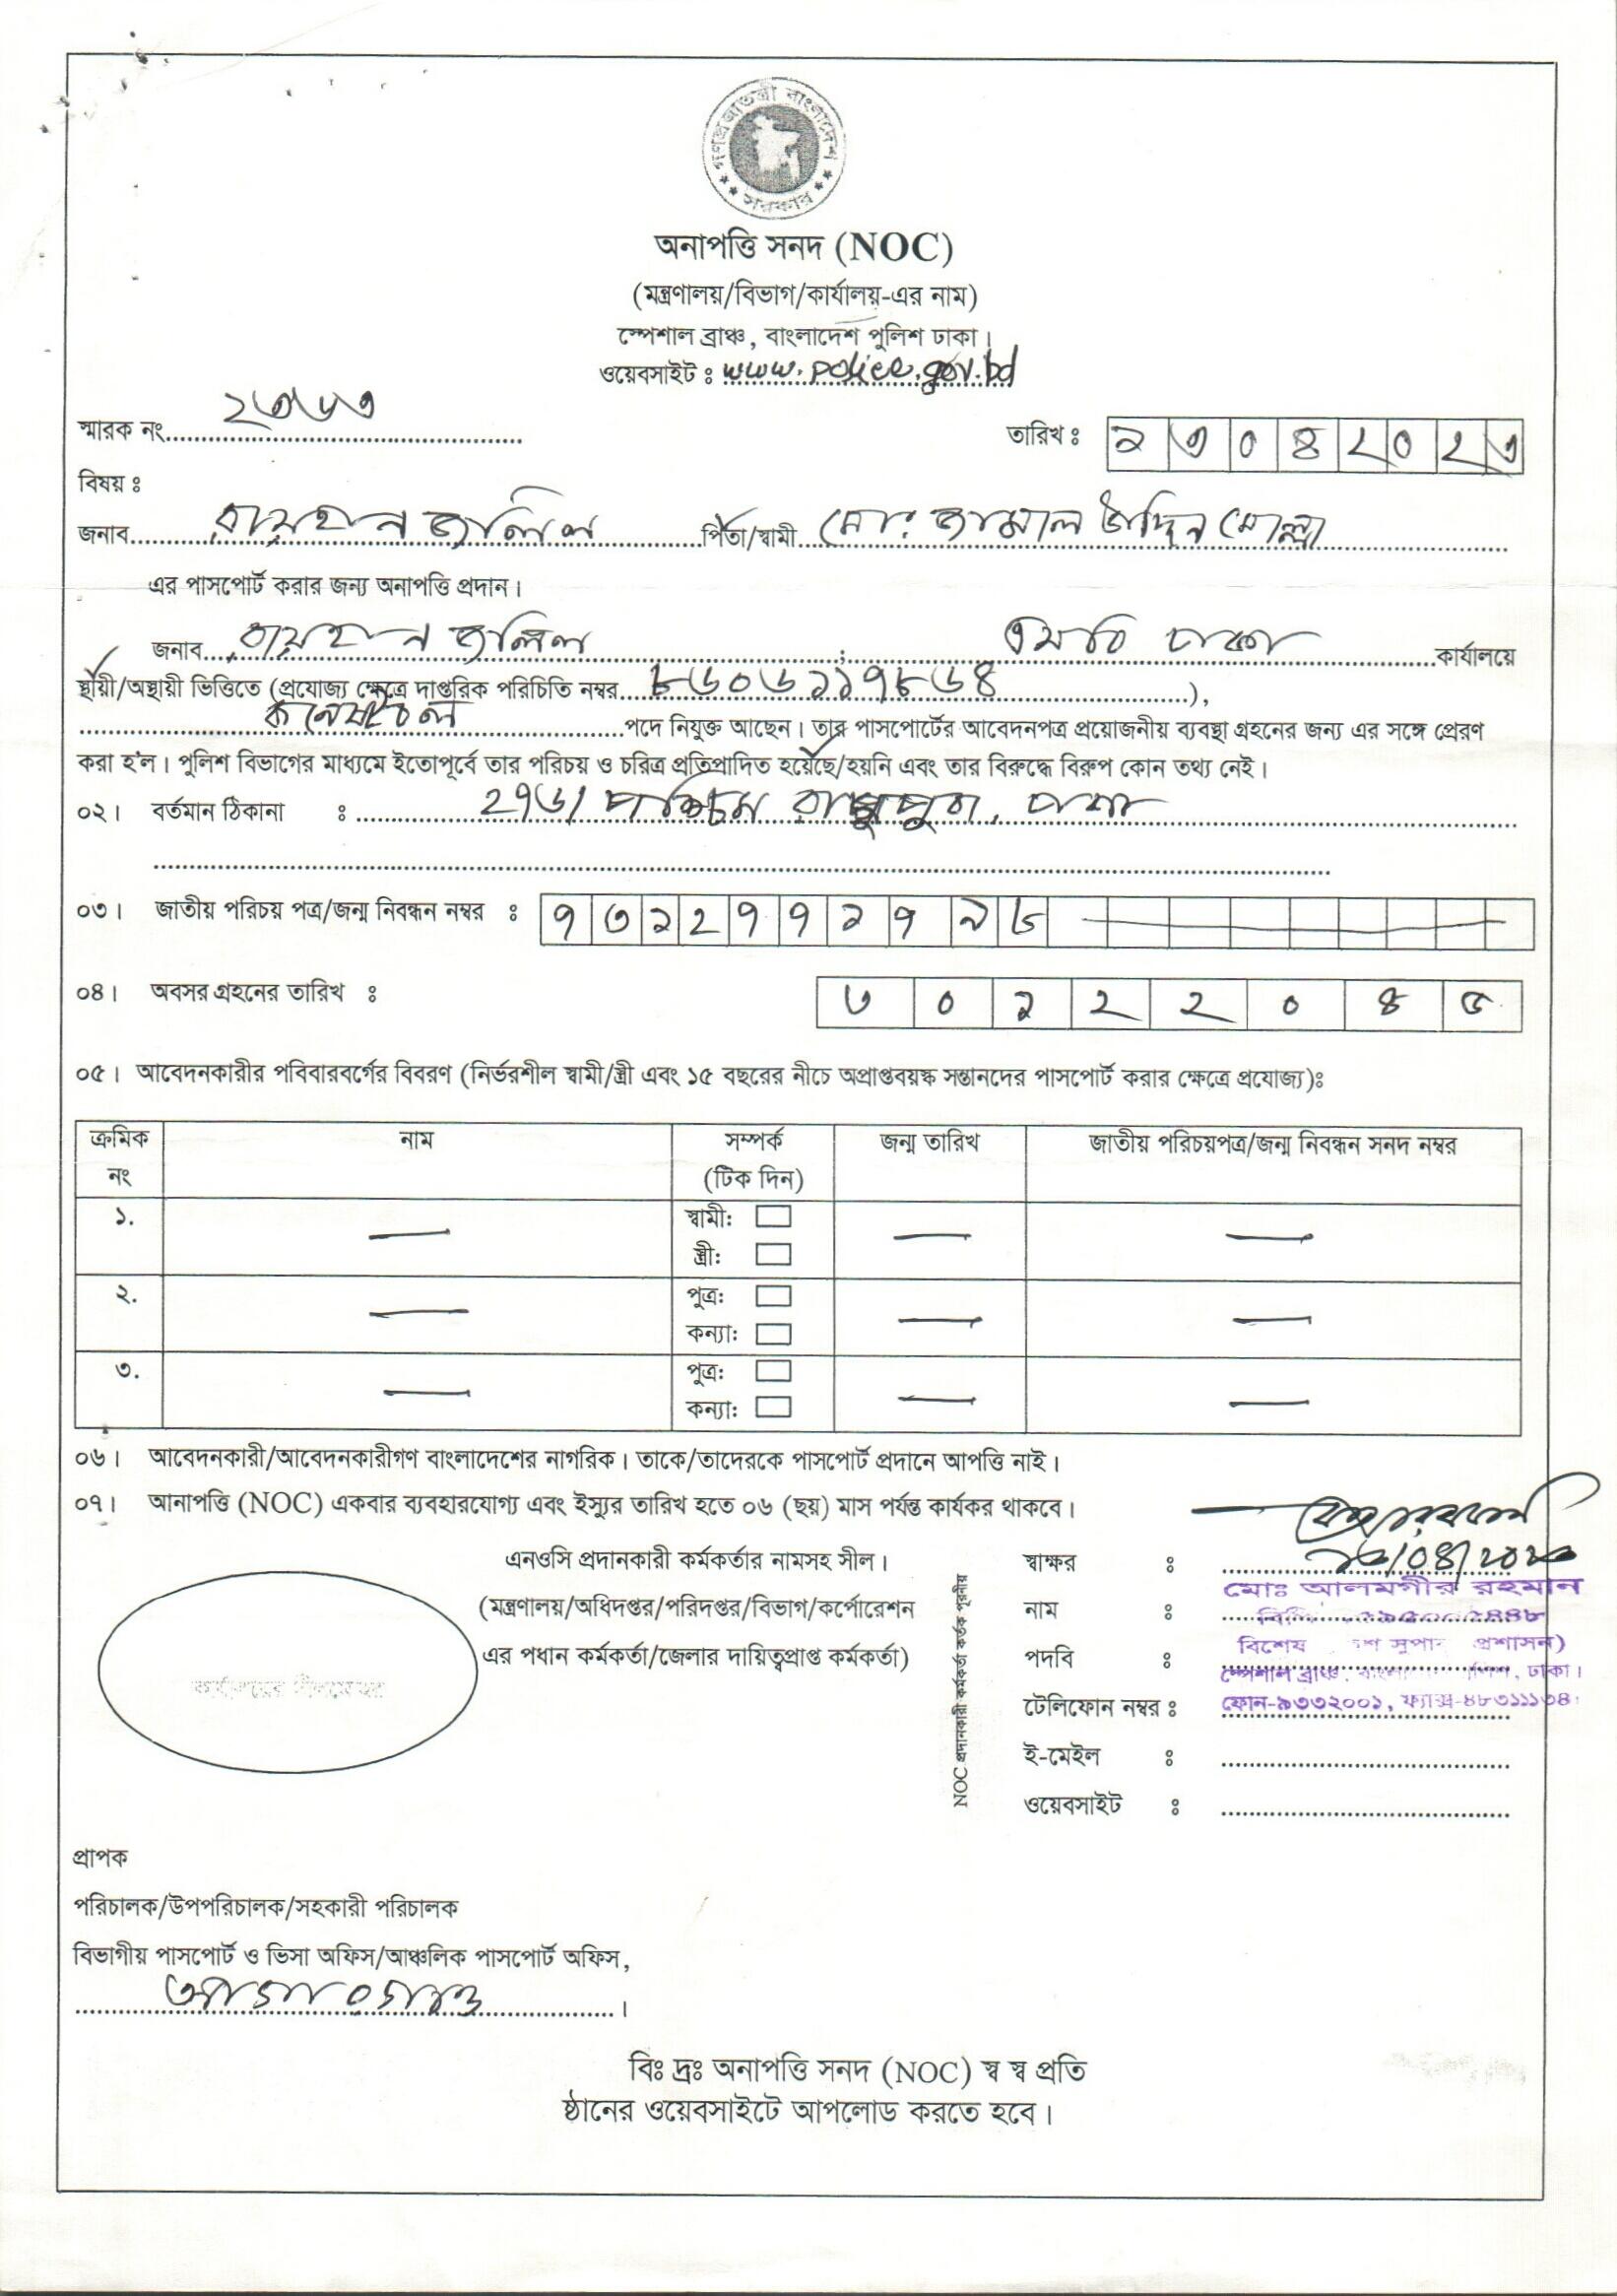 গণপ্রজাতন্ত্রী বাংলাদেশ সরকার
অনাপত্তি সনদ (NOC)
(মন্ত্রণালয়/বিভাগ/কার্যালয়-এর নাম)
স্পেশাল ব্রাঞ্চ, বাংলাদেশ পুলিশ ঢাকা।
ওয়েবসাইট ঃ www.police.gov.bd
স্মারক নং ২৩৬৩ তারিখ ঃ ১৩০৪২০২৩
বিষয় ঃ
জনাব রায়হান জলিল পিতা/স্বামী মোঃ জামাল উদ্দিন মোল্লা
এর পাসপোর্ট করার জন্য অনাপত্তি প্রদান।
জনাব রায়হান জলিল ; এসবি ঢাকা কার্যালয়ে
স্থায়ী/অস্থায়ী ভিত্তিতে (প্রযোজ্য ক্ষেত্রে দাপ্তরিক পরিচিতি নম্বর ৮৬০৬১১৭৮৬৪ ),
কনেষ্টবল পদে নিযুক্ত আছেন। তার পাসপোর্টের আবেদনপত্র প্রয়োজনীয় ব্যবস্থা গ্রহনের জন্য এর সঙ্গে প্রেরণ
করা হ'ল। পুলিশ বিভাগের মাধ্যমে ইতোপূর্বে তার পরিচয় ও চরিত্র প্রতিপ্রাদিত হয়েছে/হয়নি এবং তার বিরুদ্ধে বিরুপ কোন তথ্য নেই।
০২। বর্তমান ঠিকানা ঃ ২৭৬/ পশ্চিম রামপুরা, ঢাকা
০৩। জাতীয় পরিচয় পত্র/জন্ম নিবন্ধন নম্বর ঃ ৭৩১২৭৭১৭৯৮
০৪। অবসর গ্রহনের তারিখ ঃ ৩০১২২০৪৫
০৫। আবেদনকারীর পবিবারবর্গের বিবরণ (নির্ভরশীল স্বামী/স্ত্রী এবং ১৫ বছরের নীচে অপ্রাপ্তবয়স্ক সন্তানদের পাসপোর্ট করার ক্ষেত্রে প্রযোজ্য)ঃ
ক্রমিক নং নাম সম্পর্ক (টিক দিন) জন্ম তারিখ জাতীয় পরিচয়পত্র/জন্ম নিবন্ধন সনদ নম্বর
১. — স্বামী: — —
স্ত্রী:
২. — পুত্র: — —
কন্যা:
৩. — পুত্র: — —
কন্যা:
০৬। আবেদনকারী/আবেদনকারীগণ বাংলাদেশের নাগরিক। তাকে/তাদেরকে পাসপোর্ট প্রদানে আপত্তি নাই।
০৭। আনাপত্তি (NOC) একবার ব্যবহারযোগ্য এবং ইস্যুর তারিখ হতে ০৬ (ছয়) মাস পর্যন্ত কার্যকর থাকবে।
এনওসি প্রদানকারী কর্মকর্তার নামসহ সীল।
(মন্ত্রণালয়/অধিদপ্তর/পরিদপ্তর/বিভাগ/কর্পোরেশন
এর পধান কর্মকর্তা/জেলার দায়িত্বপ্রাপ্ত কর্মকর্তা)
কার্যালয়ের সীলমোহর
NOC প্রদানকারী কর্মকর্তা কর্তৃক পূরনীয়
স্বাক্ষর ঃ
নাম ঃ মোঃ আলমগীর রহমান
পদবি ঃ বিশেষ সুপার প্রশাসন)
স্পেশাল ব্রাঞ্চ, ঢাকা।
টেলিফোন নম্বর ঃ ফোন-৯৩৩২০০১, ফ্যাক্স-৪৮৩১১১৩৪
ই-মেইল ঃ
ওয়েবসাইট ঃ
প্রাপক
পরিচালক/উপপরিচালক/সহকারী পরিচালক
বিভাগীয় পাসপোর্ট ও ভিসা অফিস/আঞ্চলিক পাসপোর্ট অফিস,
আগারগাঁও ।
বিঃ দ্রঃ অনাপত্তি সনদ (NOC) স্ব স্ব প্রতি
ষ্ঠানের ওয়েবসাইটে আপলোড করতে হবে।